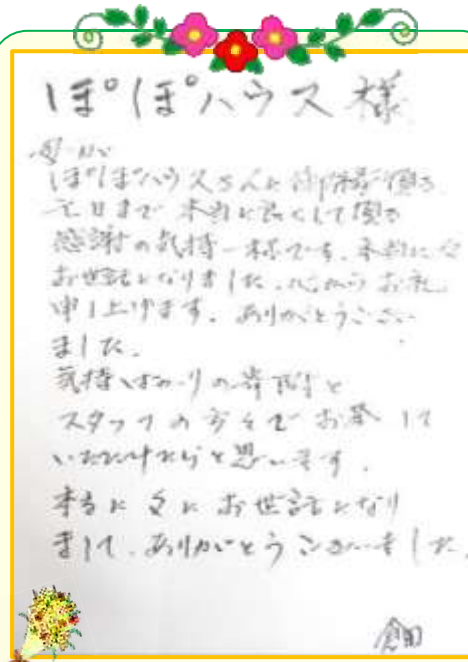 ぽぽハウス様
母が
ぽぽハウスさんに御
まで 本当に良くして頂き
感謝の気持一杯です。本当に
お世話になりました。心からお礼
申し上げます。ありがとうござい
ました。
気持ばかりの
スタッフの方々でお茶して
いただけたらと思います。
本当に お世話になり
まして、ありがとうございました。